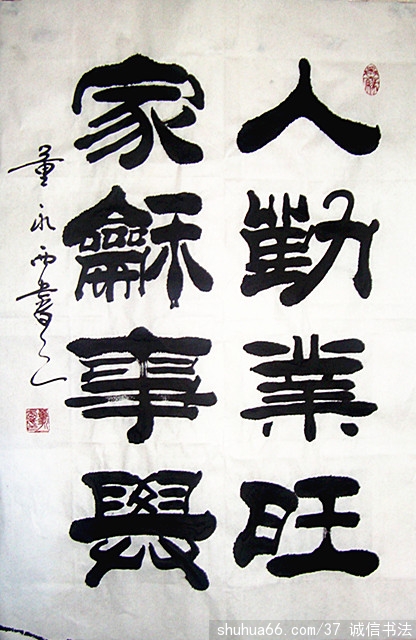 人勤業旺
家龢事興
董永西書之
shuhua66.com/37 诚信书法